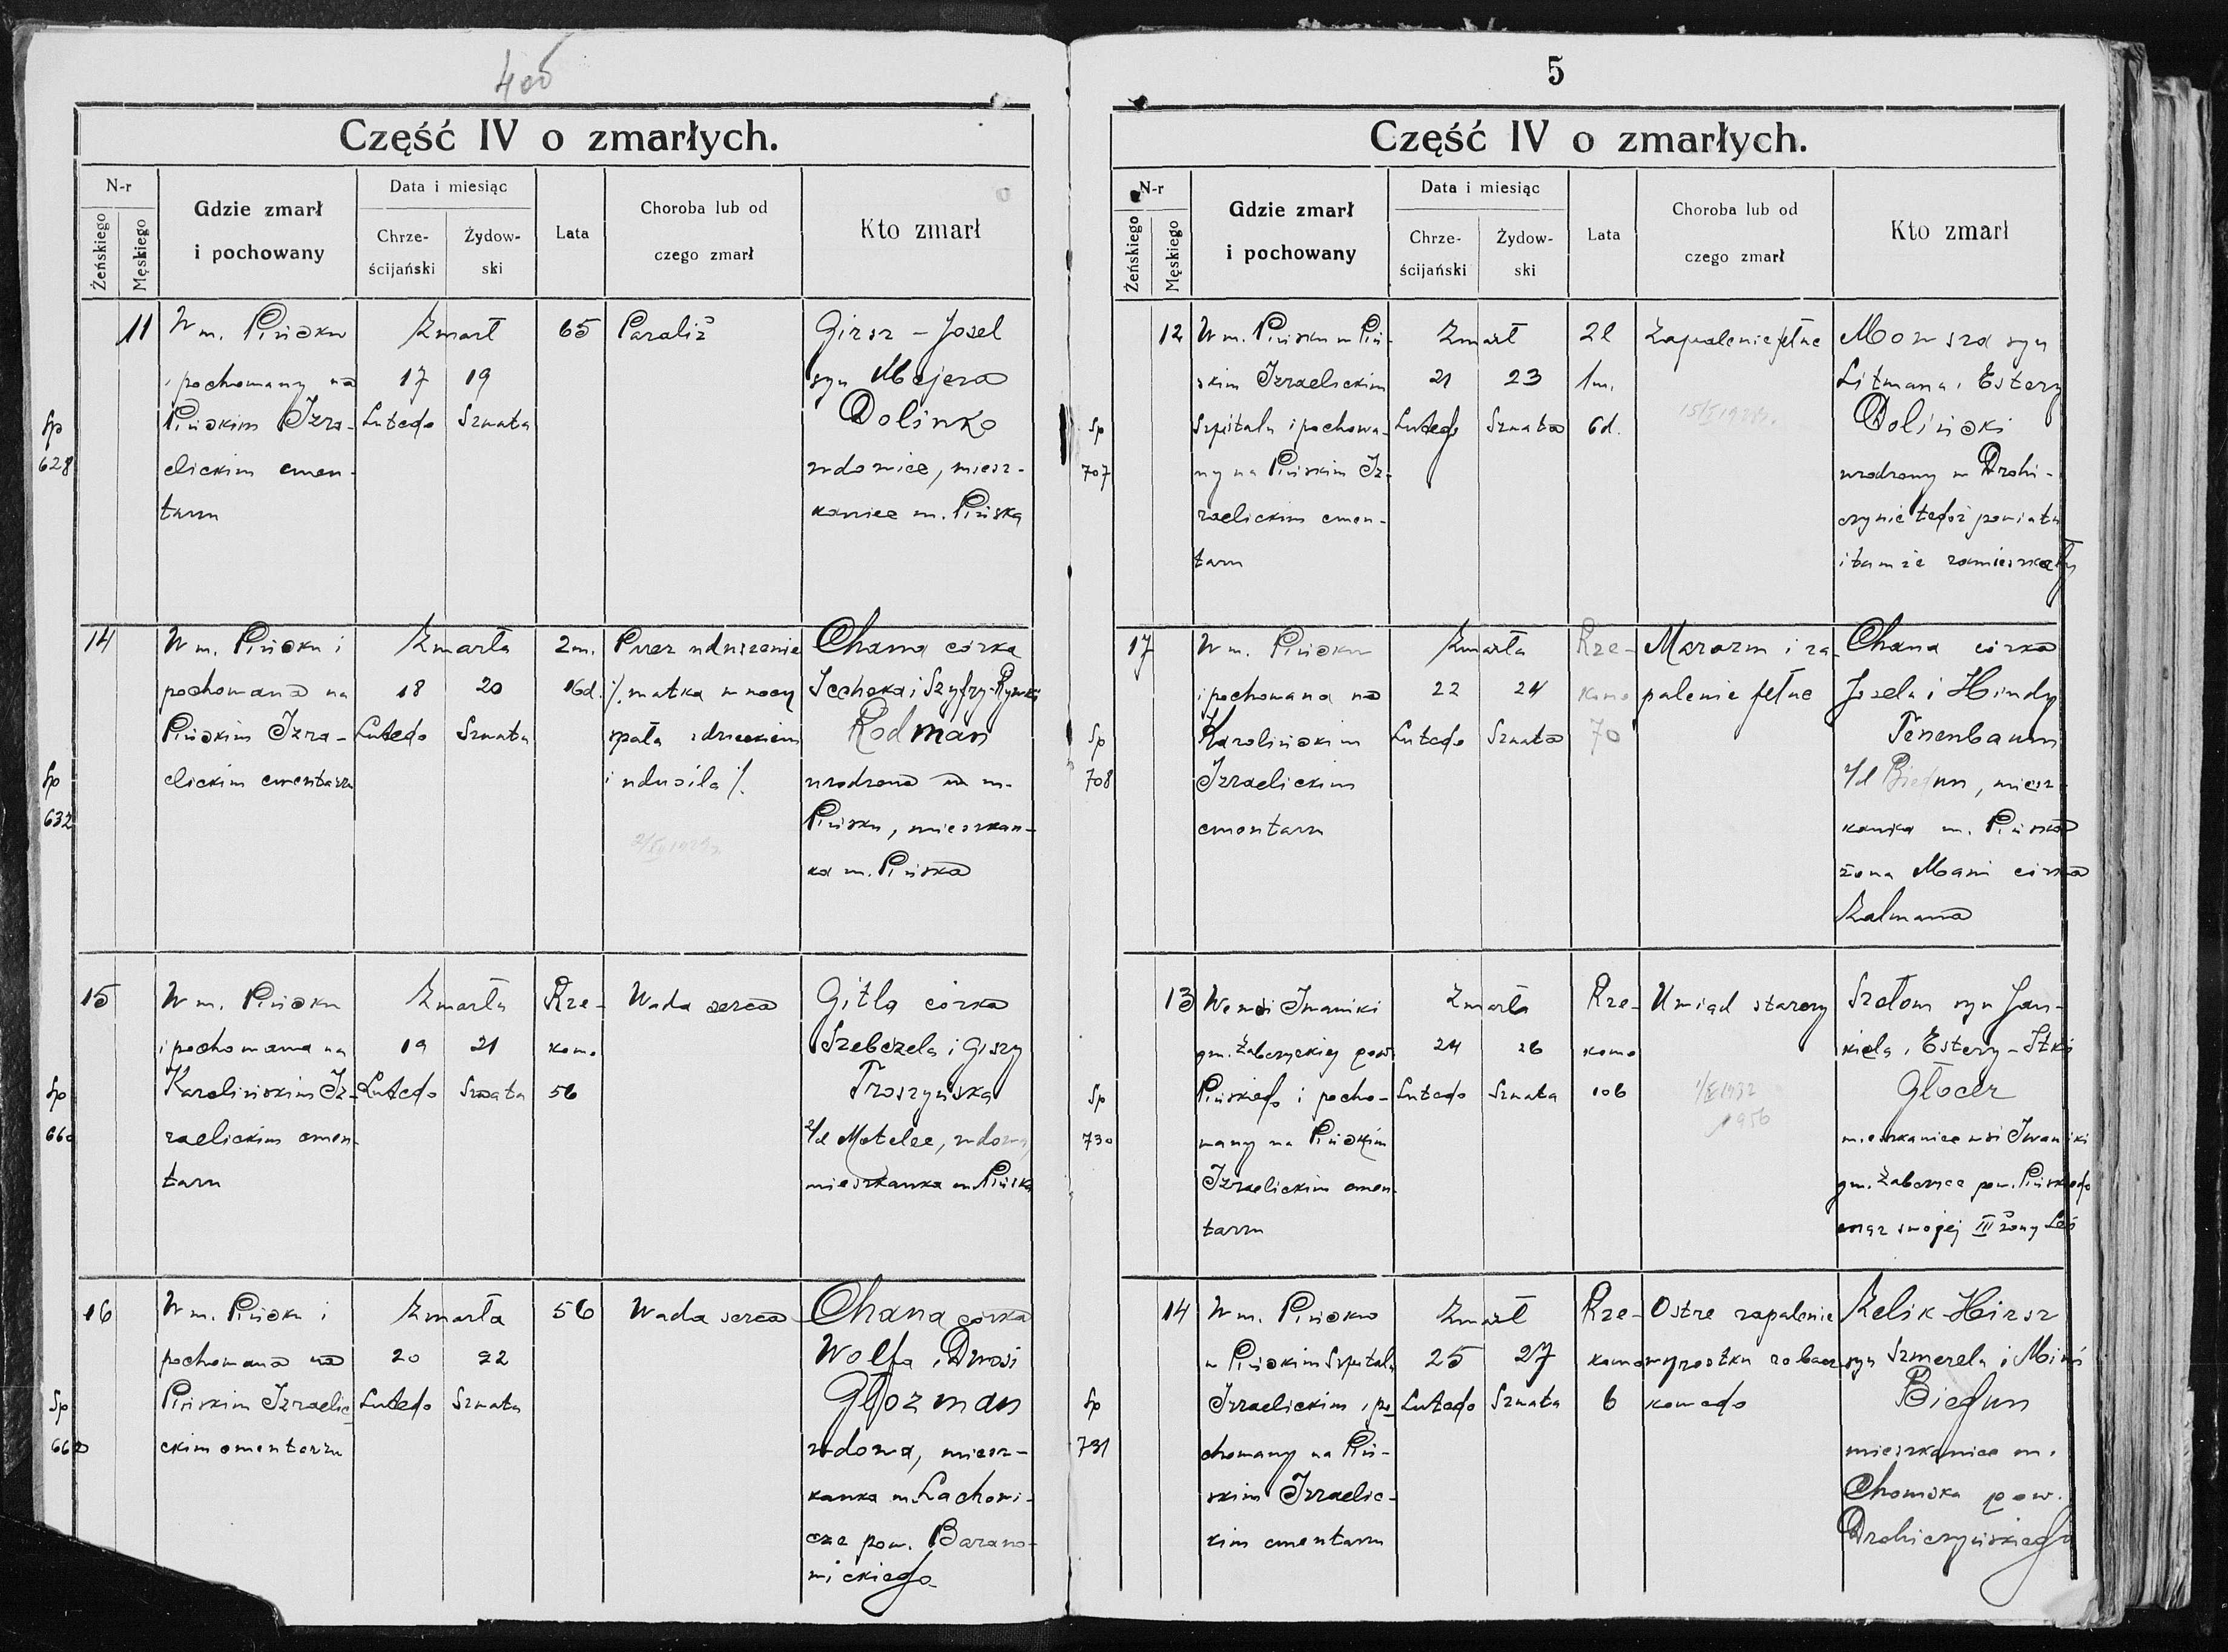 400
Część IV o zmarłych.
N-r
Żeńskiego
Męskiego
Gdzie zmarł
i pochowany
Data i miesiąc
Chrze-
ścijański
Żydow-
ski
Lata
Choroba lub od
czego zmarł
Kto zmarł
11
W m. Pińsku
i pochowany na
Pińskim Izra-
elickim cmen-
tarzu
Zmarł
17 19
Lutego Szwata
65
Paraliż
Girsz - Josel
syn Mejera
Dolinko
wdowiec, miesz-
kaniec m. Pińska
Sp
628
14
W m. Pińsku i
pochowana na
Pińskim Izra-
elickim cmentarzu
Zmarła
18 20
Lutego Szwata
2m.
16d.
Przez uduszenie
/. matka w nocy
spała z dzieckiem
i udusiła /.
Chana córka
Icchoka i Szyfry-Rywki
Rodman
urodzona w m.
Pińsku, mieszkan-
ka m. Pińska
Sp
632
15
W m. Pińsku
i pochowana na
Karolińskim Iz-
raelickim cmen-
tarzu
Zmarła
19 21
Lutego Szwata
Rze-
komo
56
Wada serca
Gitla córka
Szebczela i Giszy
Troszyńska
z/d Motelec, wdowa,
mieszkanka m. Pińska
Sp
660
16
W m. Pińsku i
pochowana na
Pińskim Izraelic-
ckim cmentarzu
Zmarła
20 22
Lutego Szwata
56
Wada serca
Chana córka
Wolfa i Dwosi
Głozman
wdowa, miesz-
kanka m. Lachowi-
cze pow. Barano-
wickiego
Sp
662
5
Część IV o zmarłych.
N-r
Żeńskiego
Męskiego
Gdzie zmarł
i pochowany
Data i miesiąc
Chrze-
ścijański
Żydow-
ski
Lata
Choroba lub od
czego zmarł
Kto zmarł
12
W m. Pińsku w Piń-
skim Izraelickim
Szpitalu i pochowa-
ny na Pińskim Iz-
raelickim cmen-
tarzu
Zmarł
21 23
Lutego Szwata
2l
1m.
6d.
Zapalenie płuc
Mowsza syn
Litmana i Estery
Doliński
urodzony w Drohi-
czynie tegoż powiatu
i tamże zamieszkały
Sp
707
17
W m. Pińsku
i pochowana na
Karolińskim
Izraelickim
cmentarzu
Zmarła
22 24
Lutego Szwata
Rze-
komo
70
Marazm i za-
palenie płuc
Chana córka
Josela i Hindy
Tenenbaum
z/d Biegun, miesz-
kanka m. Pińska
żona córka
Kalmana
Sp
708
13
We wsi Iwaniki
gm. Żabczyckiej pow.
Pińskiego i pocho-
wany na Pińskim
Izraelickim cmen-
tarzu
Zmarła
24 26
Lutego Szwata
Rze-
komo
106
Uwiąd starczy
Szełom syn Jan-
kiela i Estery-Itki
Głocer
mieszkaniec wsi Iwaniki
gm. Żabczyce pow. Pińskiego
mąż swojej III żony Lei
Sp
730
14
W m. Pińsku
w Pińskim Szpitalu
Izraelickim i po-
chowany na Piń-
skim Izraelic-
kim cmentarzu
Zmarł
25 27
Lutego Szwata
Rze-
komo
6
Ostre zapalenie
wyrostku robacz-
kowego
Zelik-Hirsz
syn Szmerela i Mini
Biegun
mieszkaniec m.
Chomska pow.
Drohiczyńskiego
Sp
731